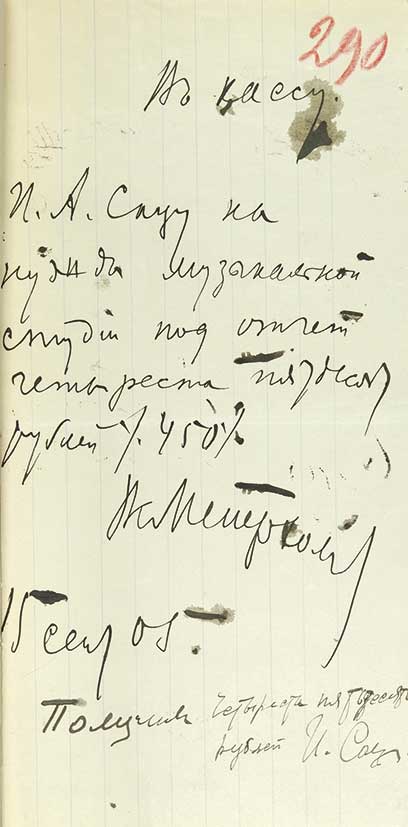 290
Въ кассу.
И. А. Сацу на
нужды музыкальной
студіи под отчет
четыреста пятьдесят
рублей /. 450 /.
Вс Мейерхольд
15 сент 05.
Получил четыреста пятьдесят
рублей И. Сац.